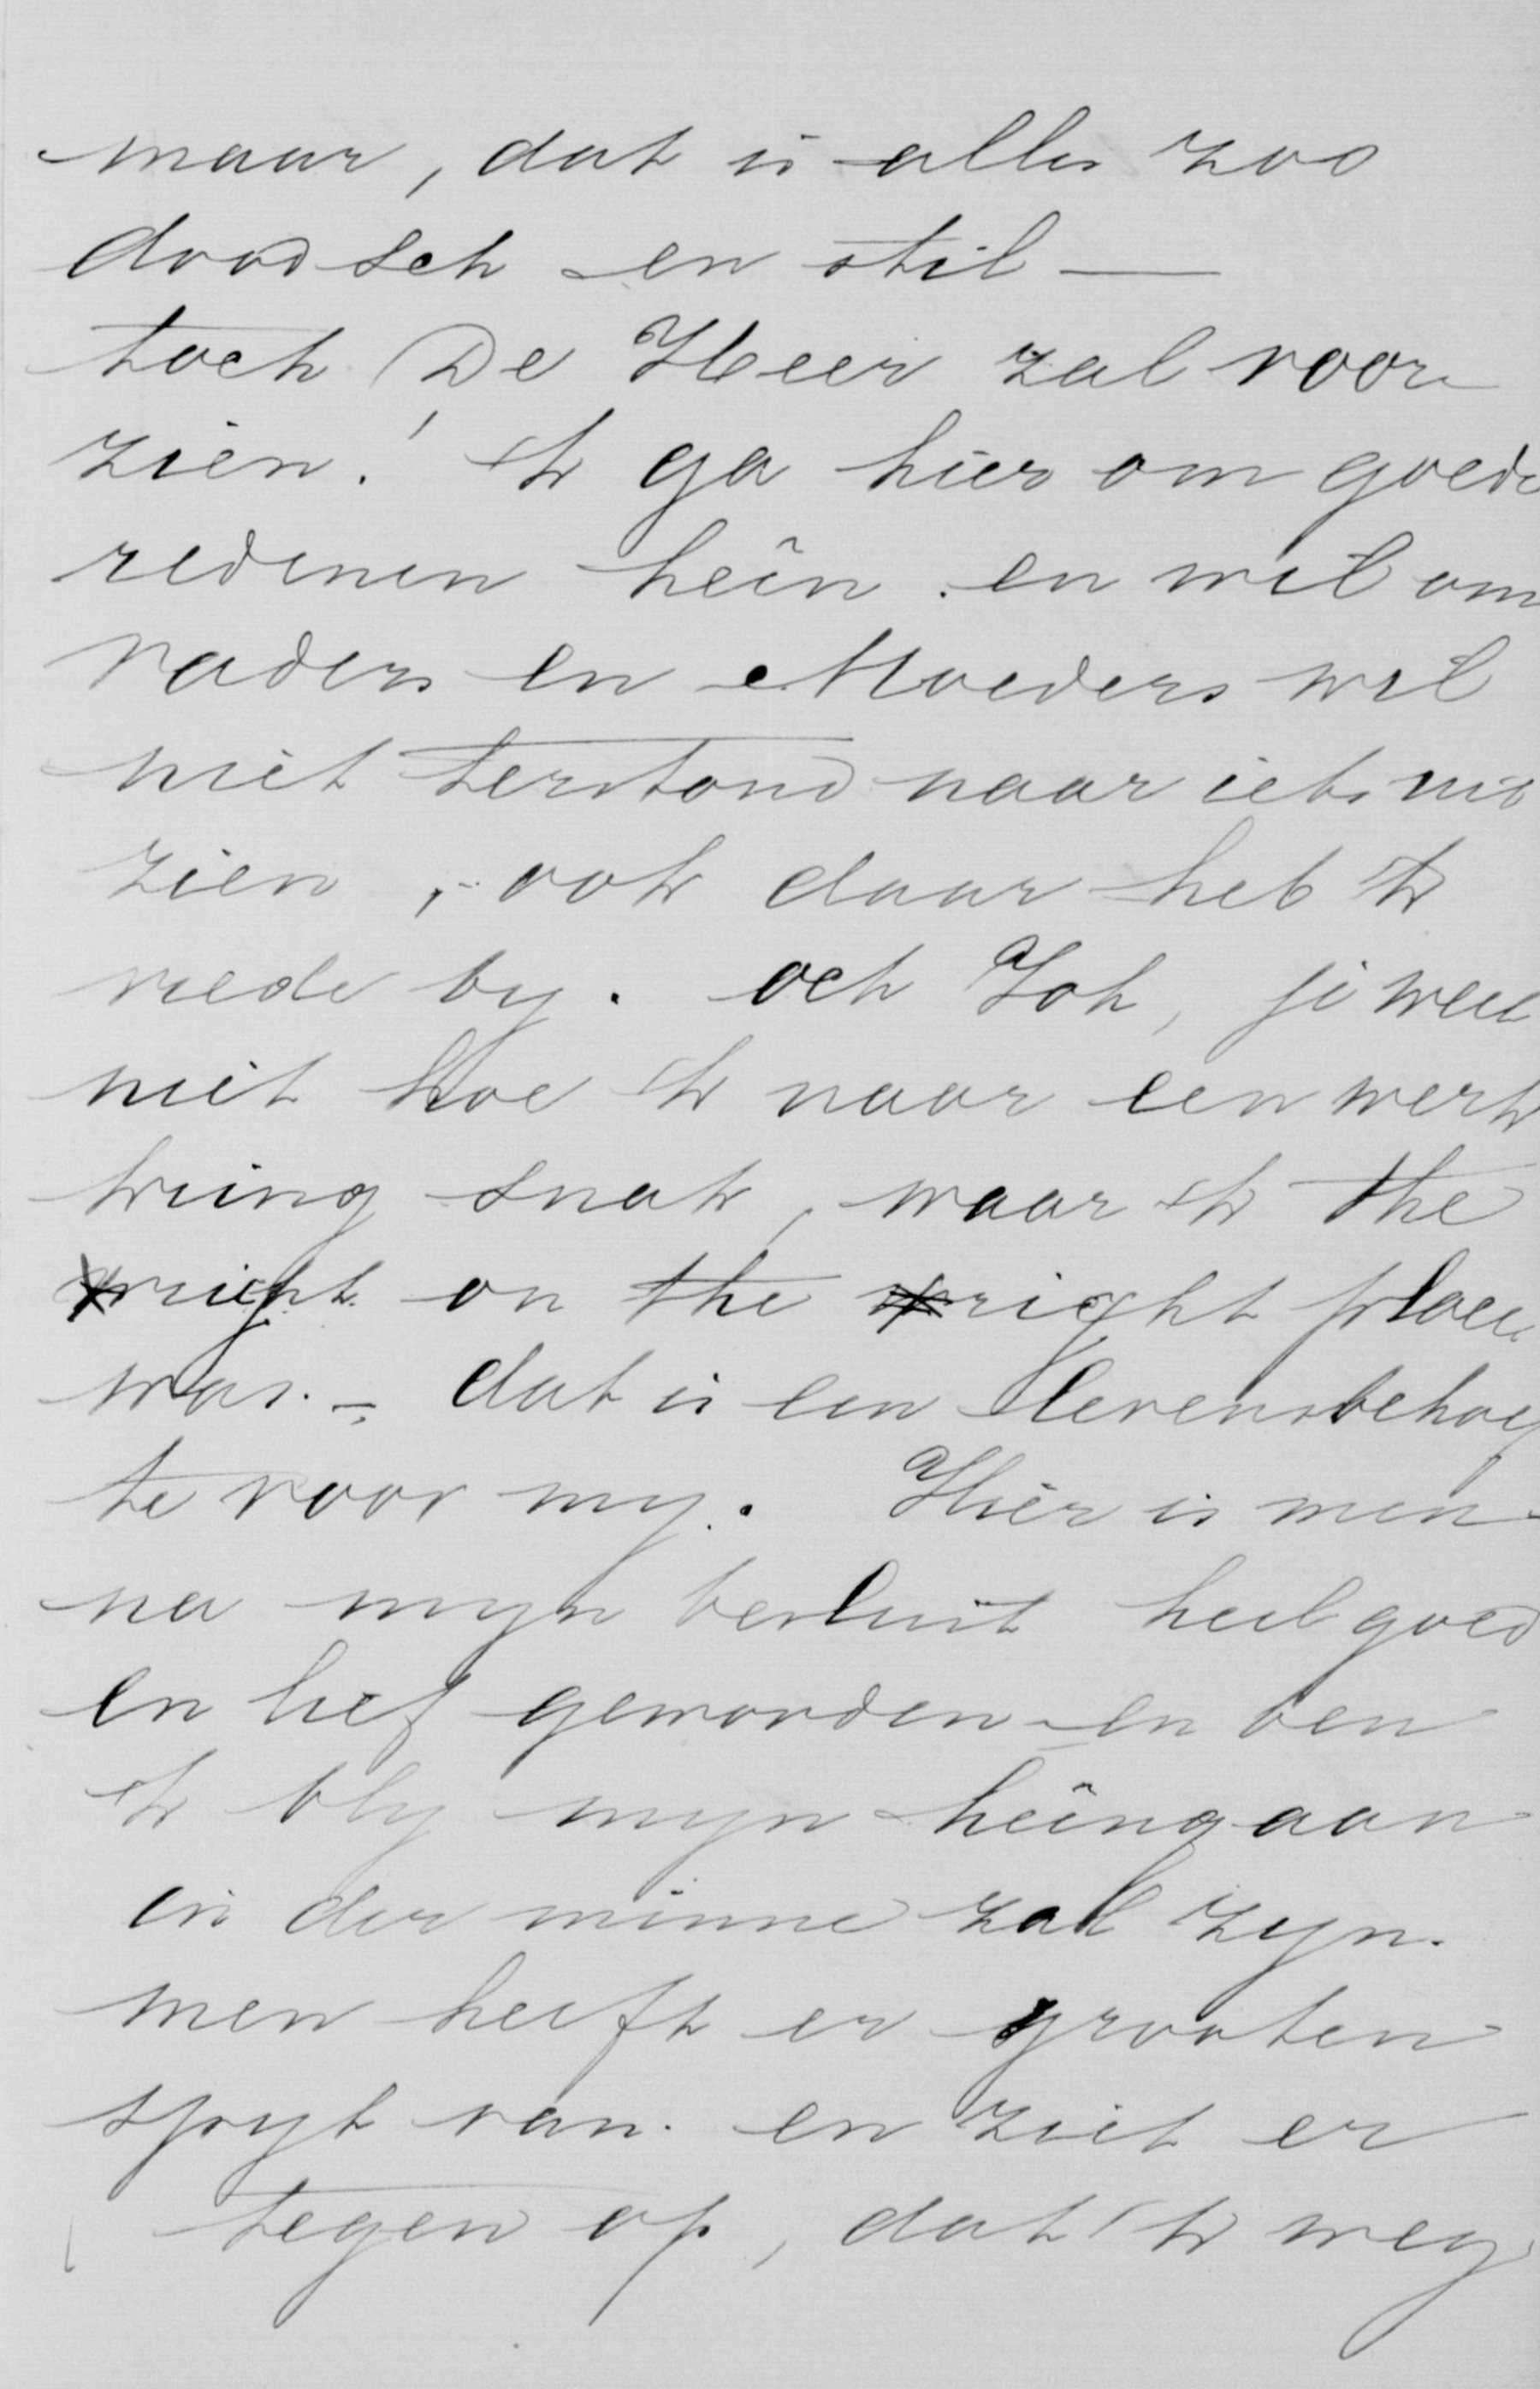 maar, dat is alles zoo
doodsch en stil —
toch De Heer zal voor
zien! Ik ga hier om goede
redenen heên en wil om
vaders en Moeders wil
niet terstond naar iets uit
zien, - ook daar heb ik
vrede by. och Joh, je weet
niet hoe ik naar een werk
kring snak, waar ik the
right on the right place
was. - dat is een levensbehoef
te voor my. Hier is men
na myn besluit heel goed
en lief geworden en ben
ik bly myn heêngaan
in der minne zal zyn.
men heeft er grooten
spyt van. en ziet er
tegen op, dat ik weg